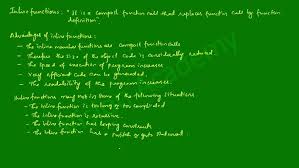 Inline functions: "It is a compact function call that replaces function call by function
definition".
Advantages of inline functions:
- The inline member functions are compact function calls
- Therefore the size of the object code is considerably reduced.
- The speed of execution of program increases
- Very efficient code can be generated,
- The readability of the program increases.
Inline functions may not in some of the following situations
- The inline function is too long or too complicated
- The inline function is recursive.
- The inline function has looping constructs
- The inline function has a switch or goto statement.